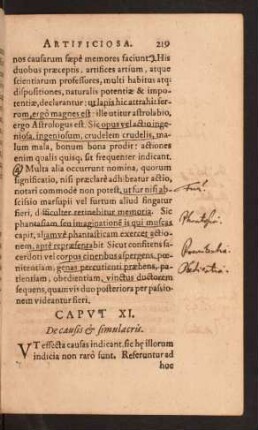 ARTIFICIOSA. 219
nos causarum sæpè memores faciunt. His
duobus præceptis, artifices artium, atque
scientiarum professores, multi habitus atq;
dispositiones, naturalis potentiæ & impo-
tentiæ, declarantur: ut lapis hic attrahit fer-
rum, ergò magnes est: ille utitur astrolabio,
ergo Astrologus est. Sic opus vel actu inge-
niosa, ingeniosum, crudelem crudelis, ma-
lum mala, bonum bona prodit: actiones
enim qualis quisq; sit frequenter indicant.
Multa alia occurrunt nomina, quorum
significatio, nisi præclarè adhibeatur actio,
notari commodè non potest, ut fur nisi ab-
scisio marsupii vel furtum aliud singatur
fieri, difficulter retinebitur memoria. Sic
phantasiam seu imaginationē is qui muscas
capit, aliamvè phantasticam exercet actio-
nem, aptè repræsentabit. Sicut confitens sacer-
doti vel corpus cineribus aspergens, pœ-
nitentiam; genas percutienti præbens, pa-
tientiam, obedientiam, vinctus ductorem
sequens, quamvis duo posteriora per passio-
nem videantur fieri.
Phantasia
Obedientia
CAPVT XI.
De causis & simulacris.
VT effecta causas indicant, sic hę illorum
indicia non rarò sunt. Referuntur ad
hoc